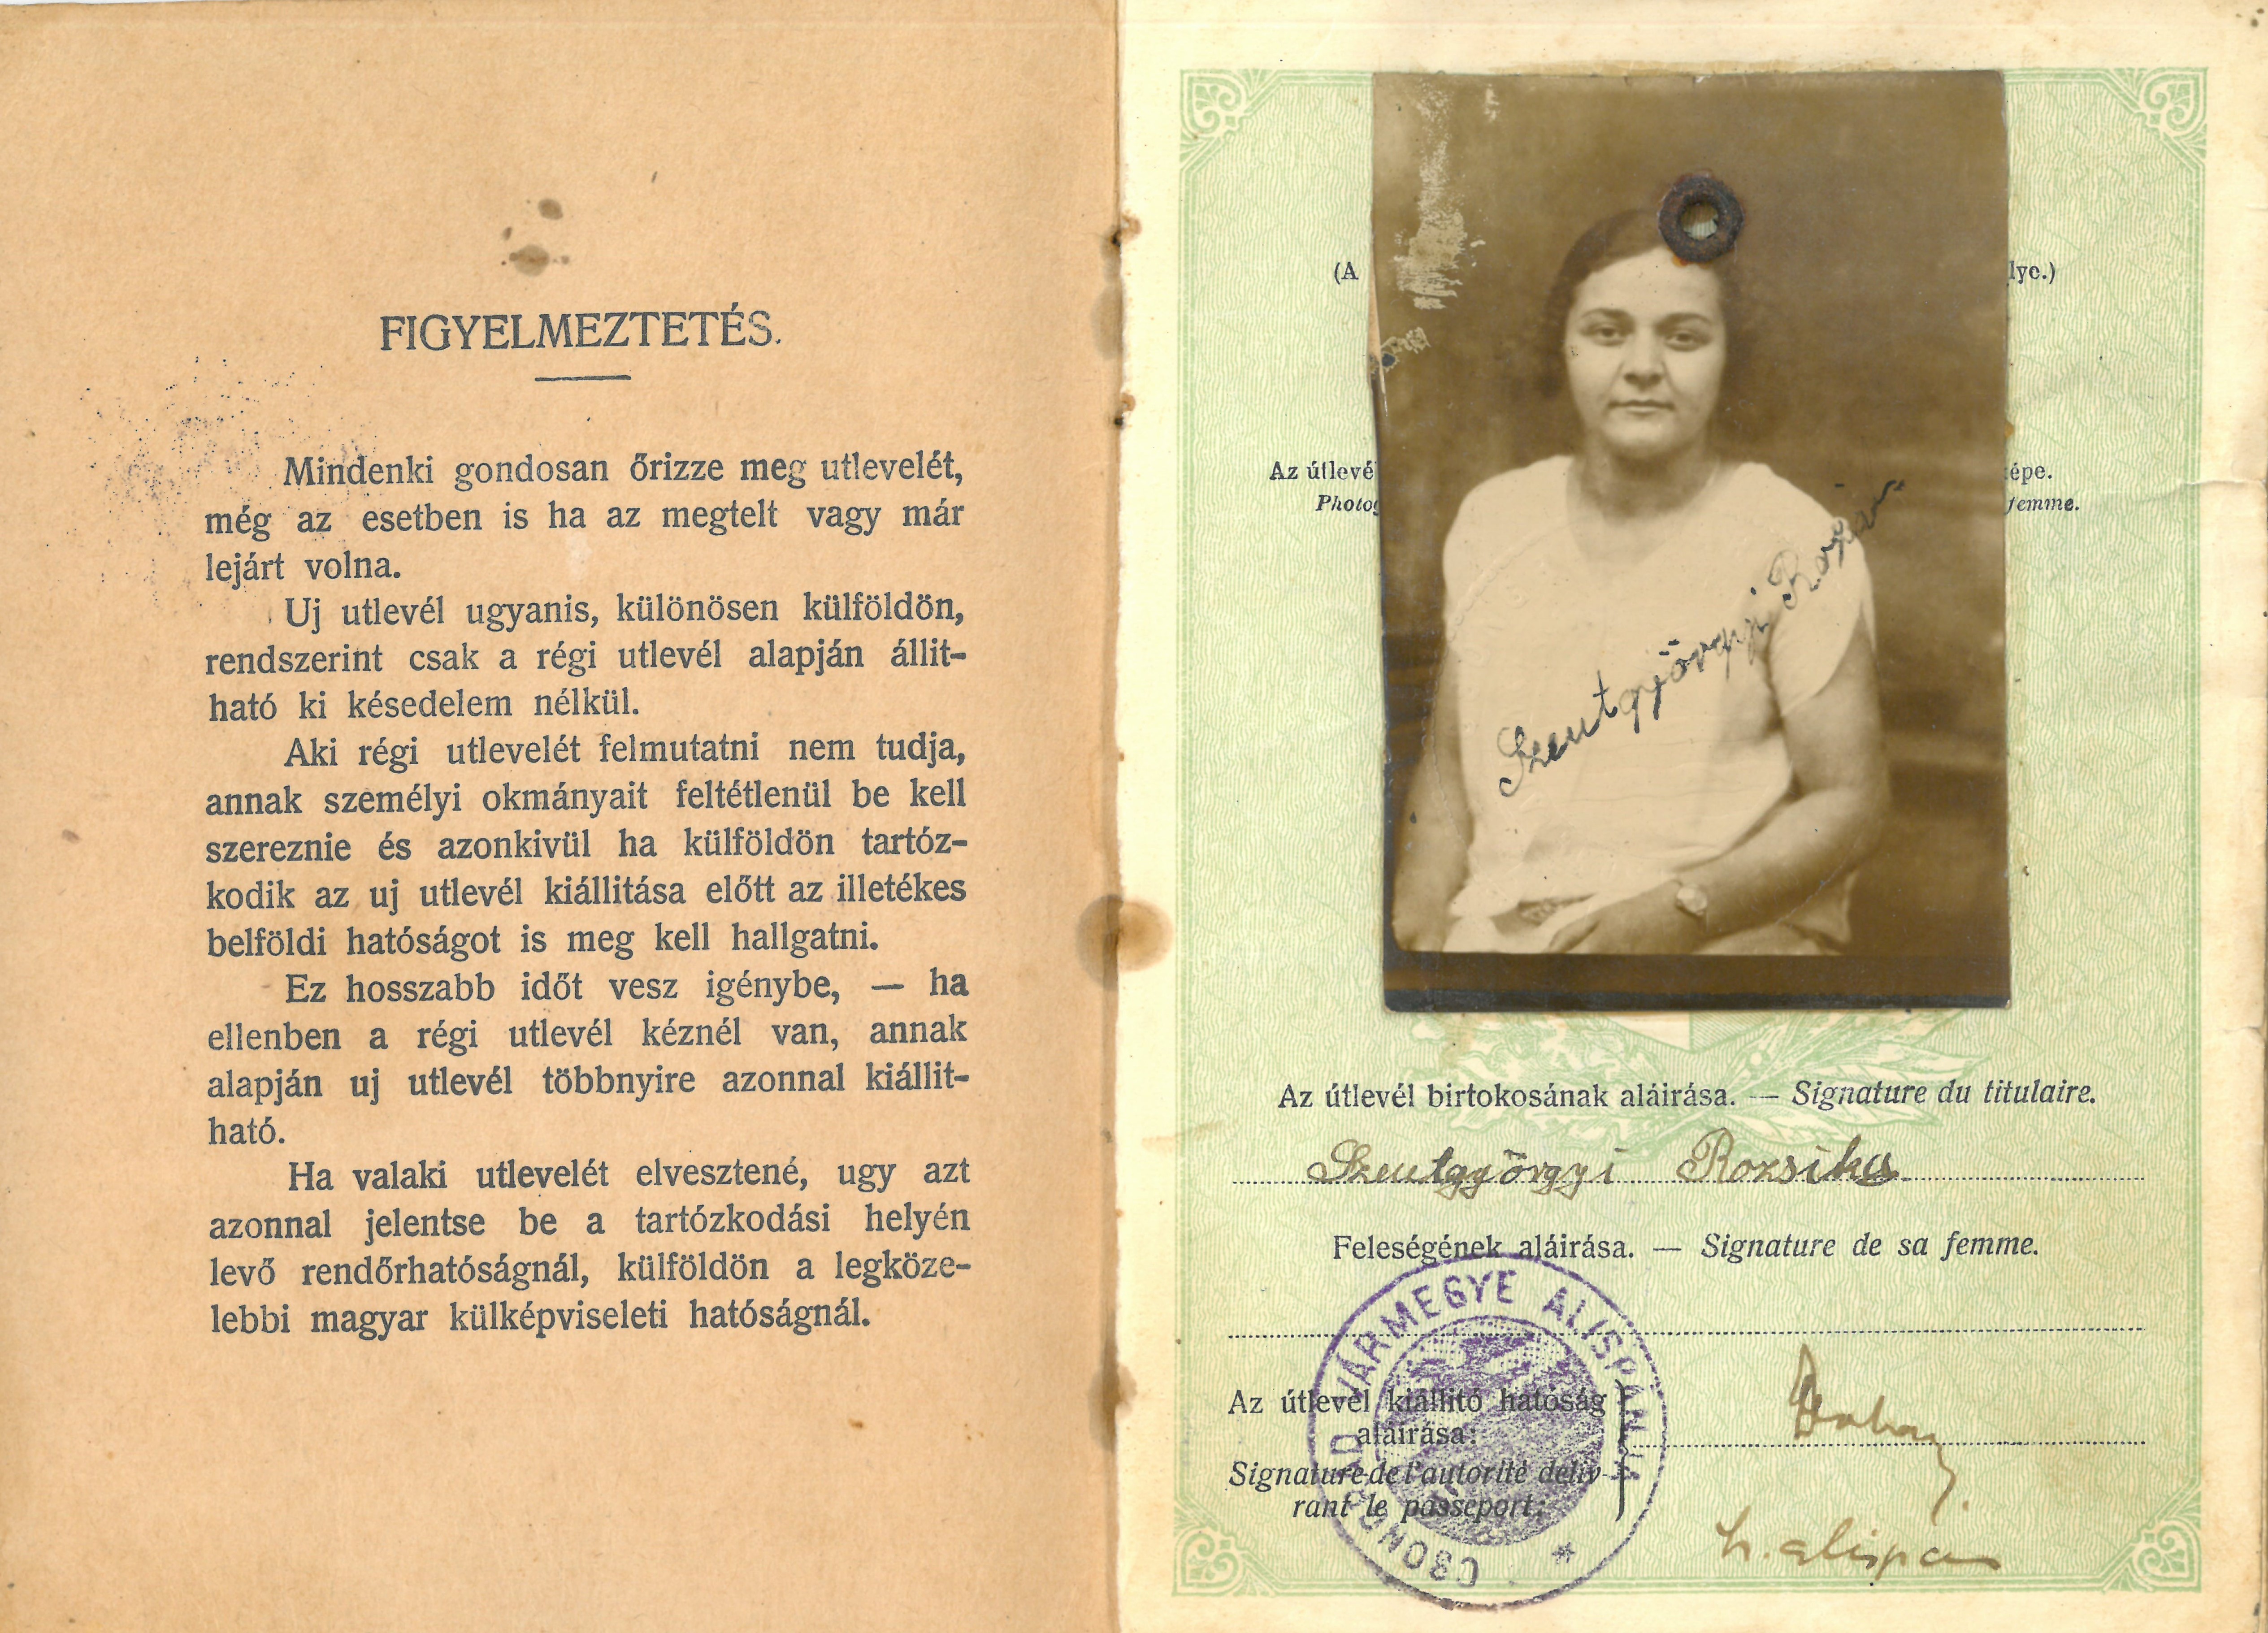 FIGYELMEZTETÉS.
Mindenki gondosan őrizze meg utlevelét,
még az esetben is ha az megtelt vagy már
lejárt volna.
Uj utlevél ugyanis, különösen külföldön,
rendszerint csak a régi utlevél alapján állit-
ható ki késedelem nélkül.
Aki régi utlevelét felmutatni nem tudja,
annak személyi okmányait feltétlenül be kell
szereznie és azonkivül ha külföldön tartóz-
kodik az uj utlevél kiállitása előtt az illetékes
belföldi hatóságot is meg kell hallgatni.
Ez hosszabb időt vesz igénybe, — ha
ellenben a régi utlevél kéznél van, annak
alapján uj utlevél többnyire azonnal kiállit-
ható.
Ha valaki utlevelét elvesztené, ugy azt
azonnal jelentse be a tartózkodási helyén
levő rendőrhatóságnál, külföldön a legköze-
lebbi magyar külképviseleti hatóságnál.
(A lye.)
Az útlevé épe.
Photog femme.
Szentgyörgyi
Az útlevél birtokosának aláirása. — Signature du titulaire.
Szentgyörgyi Rozsika
Feleségének aláirása. — Signature de sa femme.
CSONGRÁD VÁRMEGYE ALISPÁNJA *
Az útlevél kiállitó hatóság
aláirása:
Signature de l'autorité déliv-
rant le passeport:
h. alispán